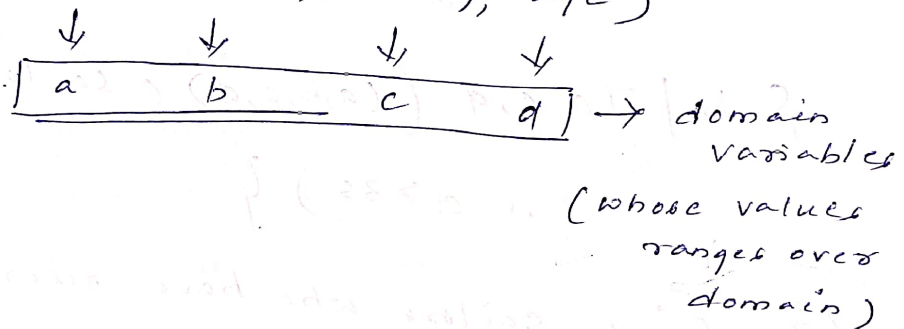 ↓ ↓ ↓ ↓
a b c d → domain
variables
(whose values
ranges over
domain)